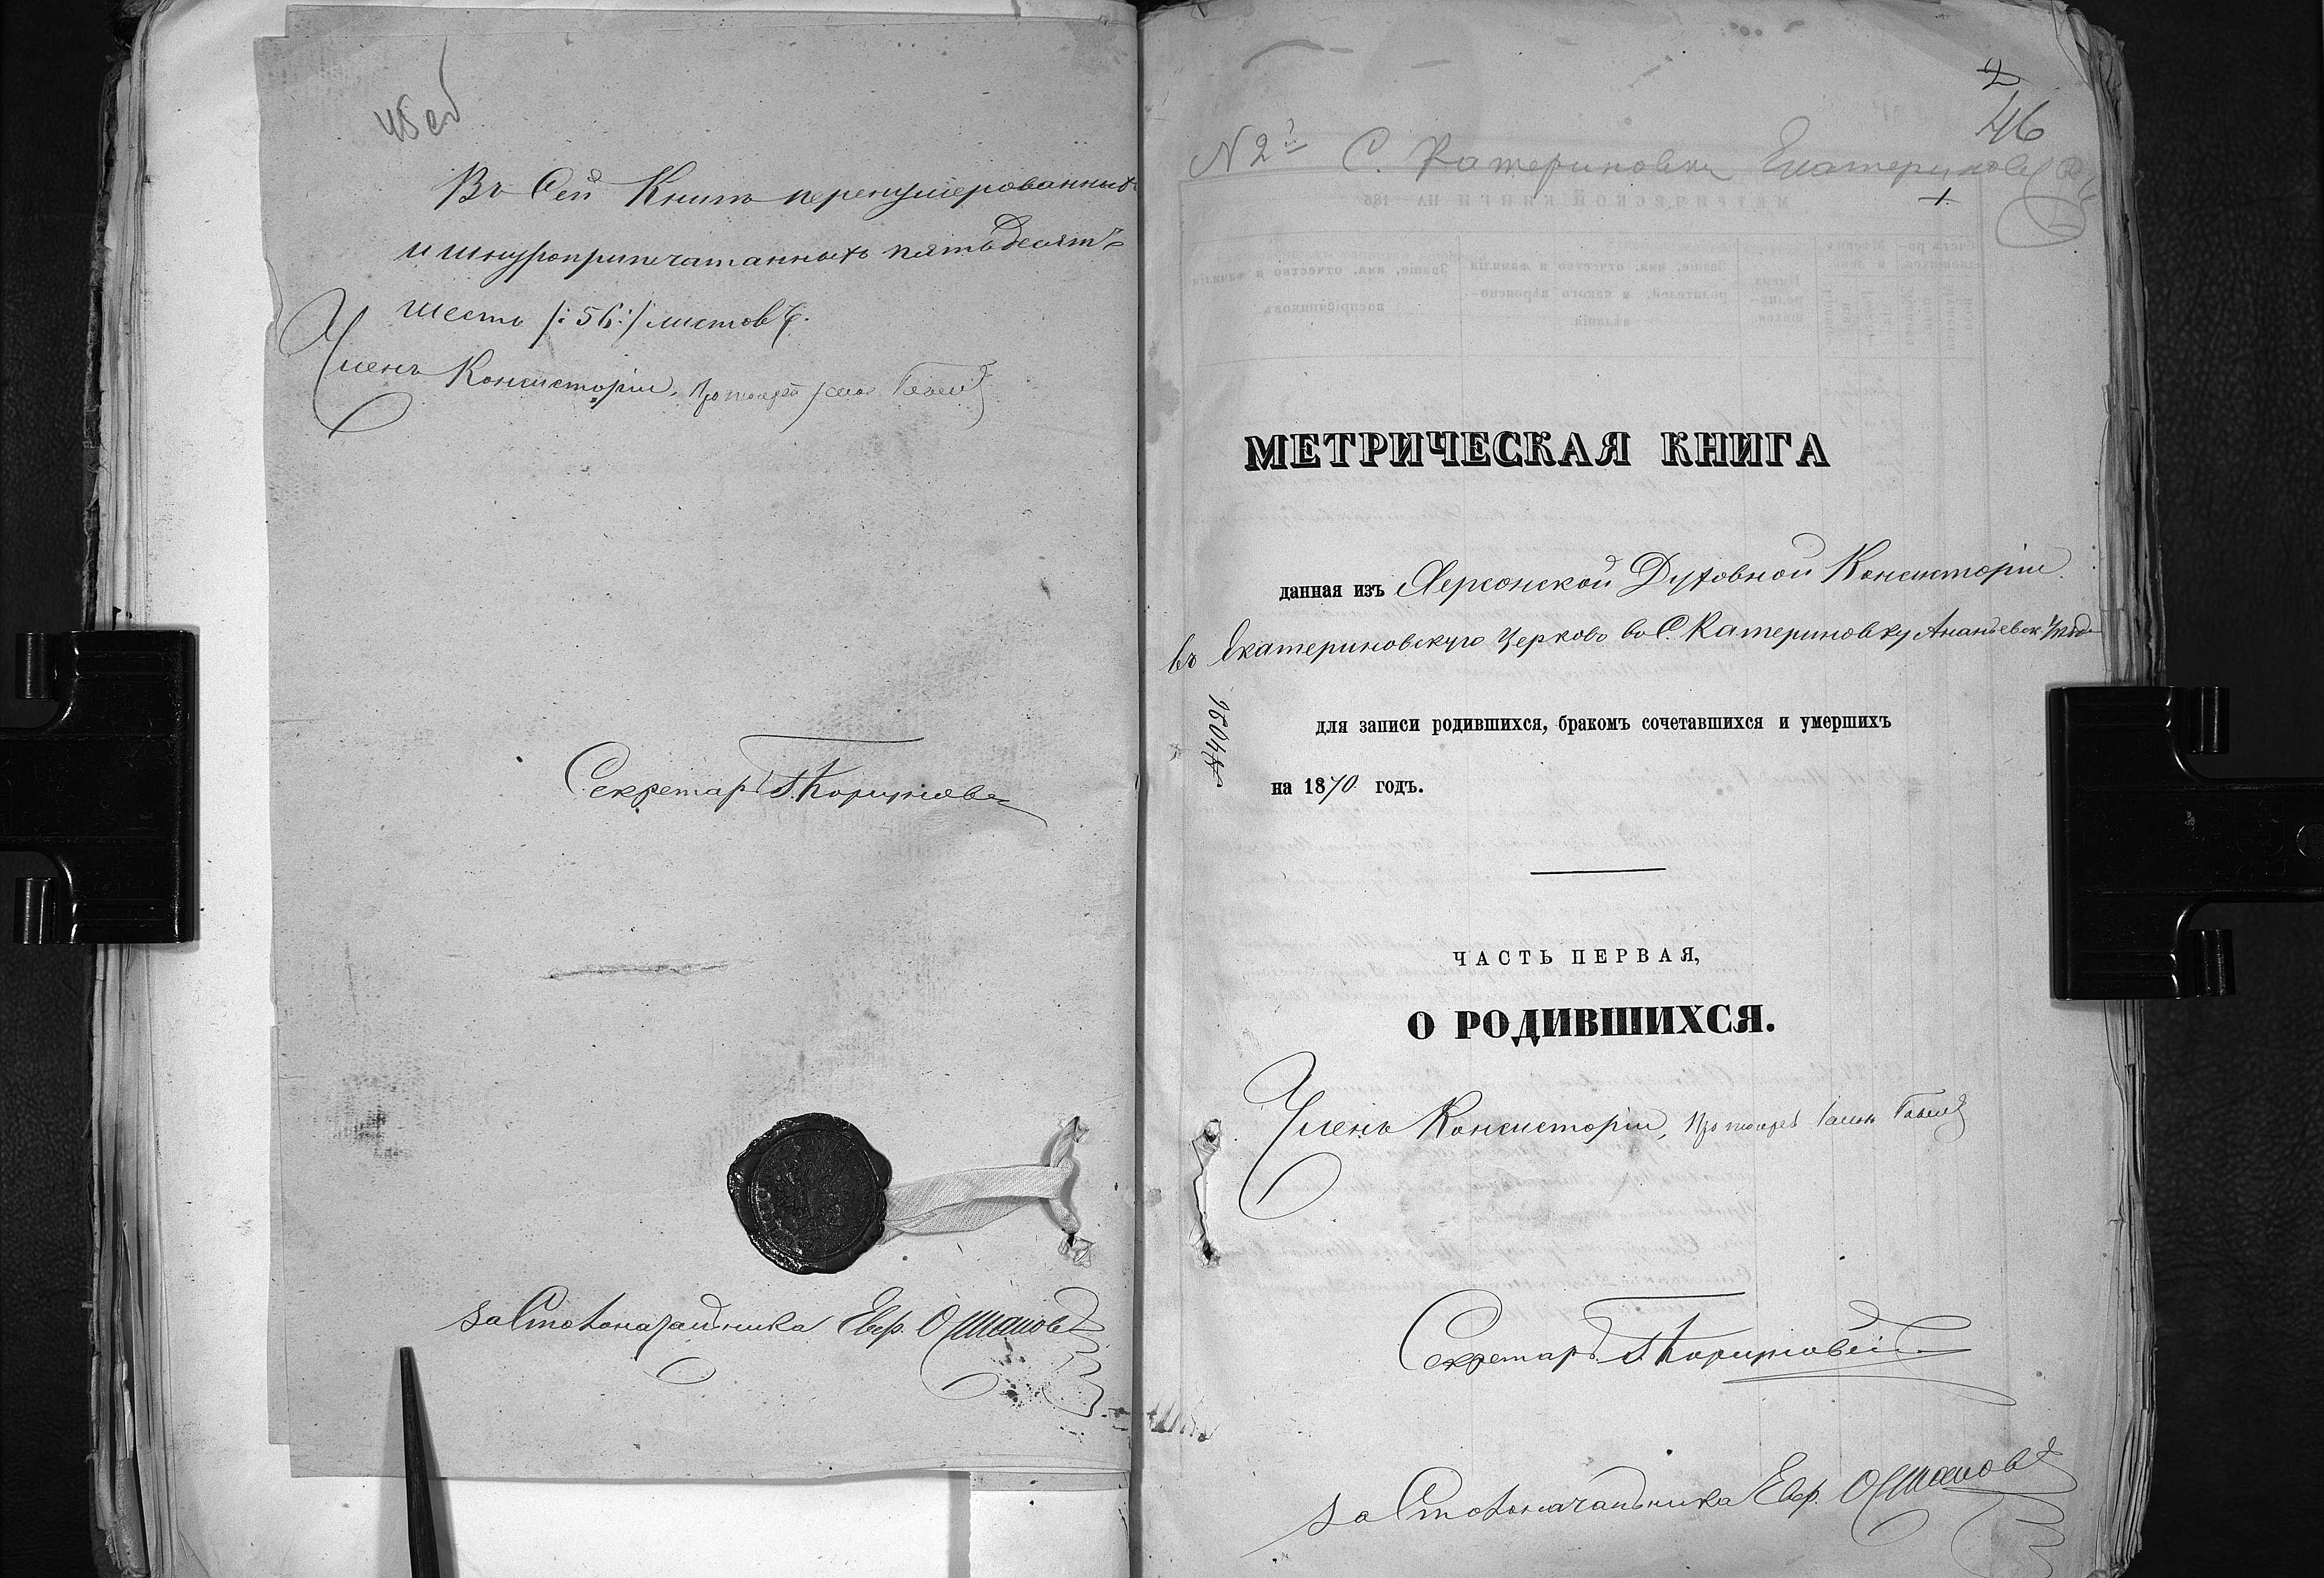 45 об
Въ Сей Книгѣ перенумерованныхъ
и шнуроприпечатанныхъ пятьдесятъ
шесть /:56:/ листовъ.
Членъ Консисторіи, Протоіерей
Секретарь
За Столоначальника Евф.
2
46
N 2й С. Катериновки Екатериновск
МЕТРИЧЕСКАЯ КНИГА
данная изъ Херсонской Духовной Консисторіи
въ Екатериновскую Церковь во С. Катериновку Ананьевск. уѣзда
№ 14026
для записи родившихся, бракомъ сочетавшихся и умершихъ
на 1870 годъ.
ЧАСТЬ ПЕРВАЯ,
О РОДИВШИХСЯ.
Членъ Консисторіи, Протоіерей
Секретарь
За Столоначальника Евф.